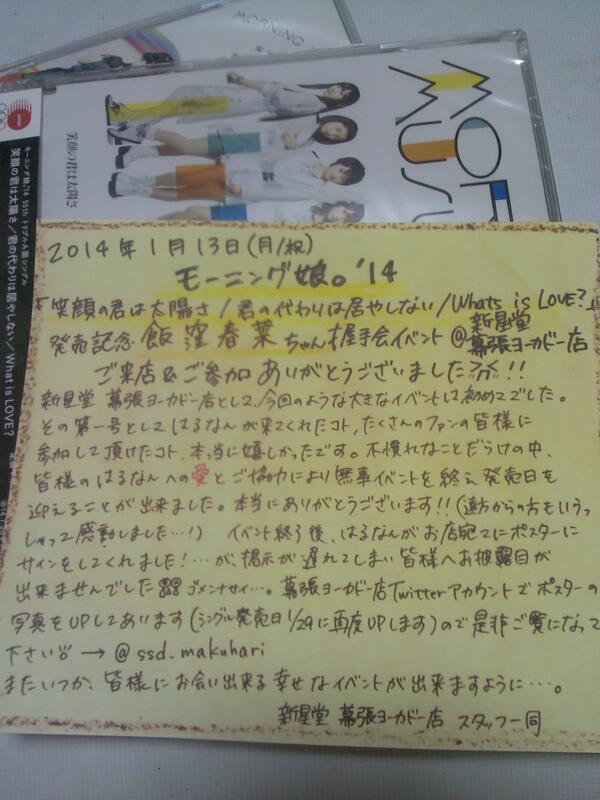 MORNING
MOR
MUSU
笑顔の君は太陽さ
モーニング娘。'14 55thトリプルA面シングル
笑顔の君は太陽さ/君の代わりは居やしない/What is LOVE?
2014年1月13日(月/祝)
モーニング娘。'14
「笑顔の君は太陽さ/君の代わりは居やしない/Whats is LOVE?」
発売記念 飯窪春菜ちゃん握手会イベント@新星堂幕張ヨーカドー店
ご来店&ご参加ありがとうございましたが!!
新星堂 幕張ヨーカドー店として、今回のような大きなイベントは初めてでした。
その第一号としてはるなんが来てくれたコト、たくさんのファンの皆様に
参加して頂けたコト、本当に嬉しかったです。不慣れなことだらけの中、
皆様のはるなんへの愛とご協力により無事イベントを終え発売日を
迎えることが出来ました。本当にありがとうございます!!(遠方からの方もいらっ
しゃって感動しました…!) イベント終了後、はるなんがお店宛てにポスターに
サインをしてくれました!…が、掲示が遅れてしまい皆様へお披露目が
出来ませんでした ゴメンナサイ…。幕張ヨーカドー店Twitterアカウントでポスターの
写真をUPしてあります(シングル発売日1/29に再度UPします)ので是非ご覧になって
下さい → @ssd_makuhari
またいつか、皆様にお会い出来る幸せなイベントが出来ますように…。
新星堂 幕張ヨーカドー店 スタッフ一同